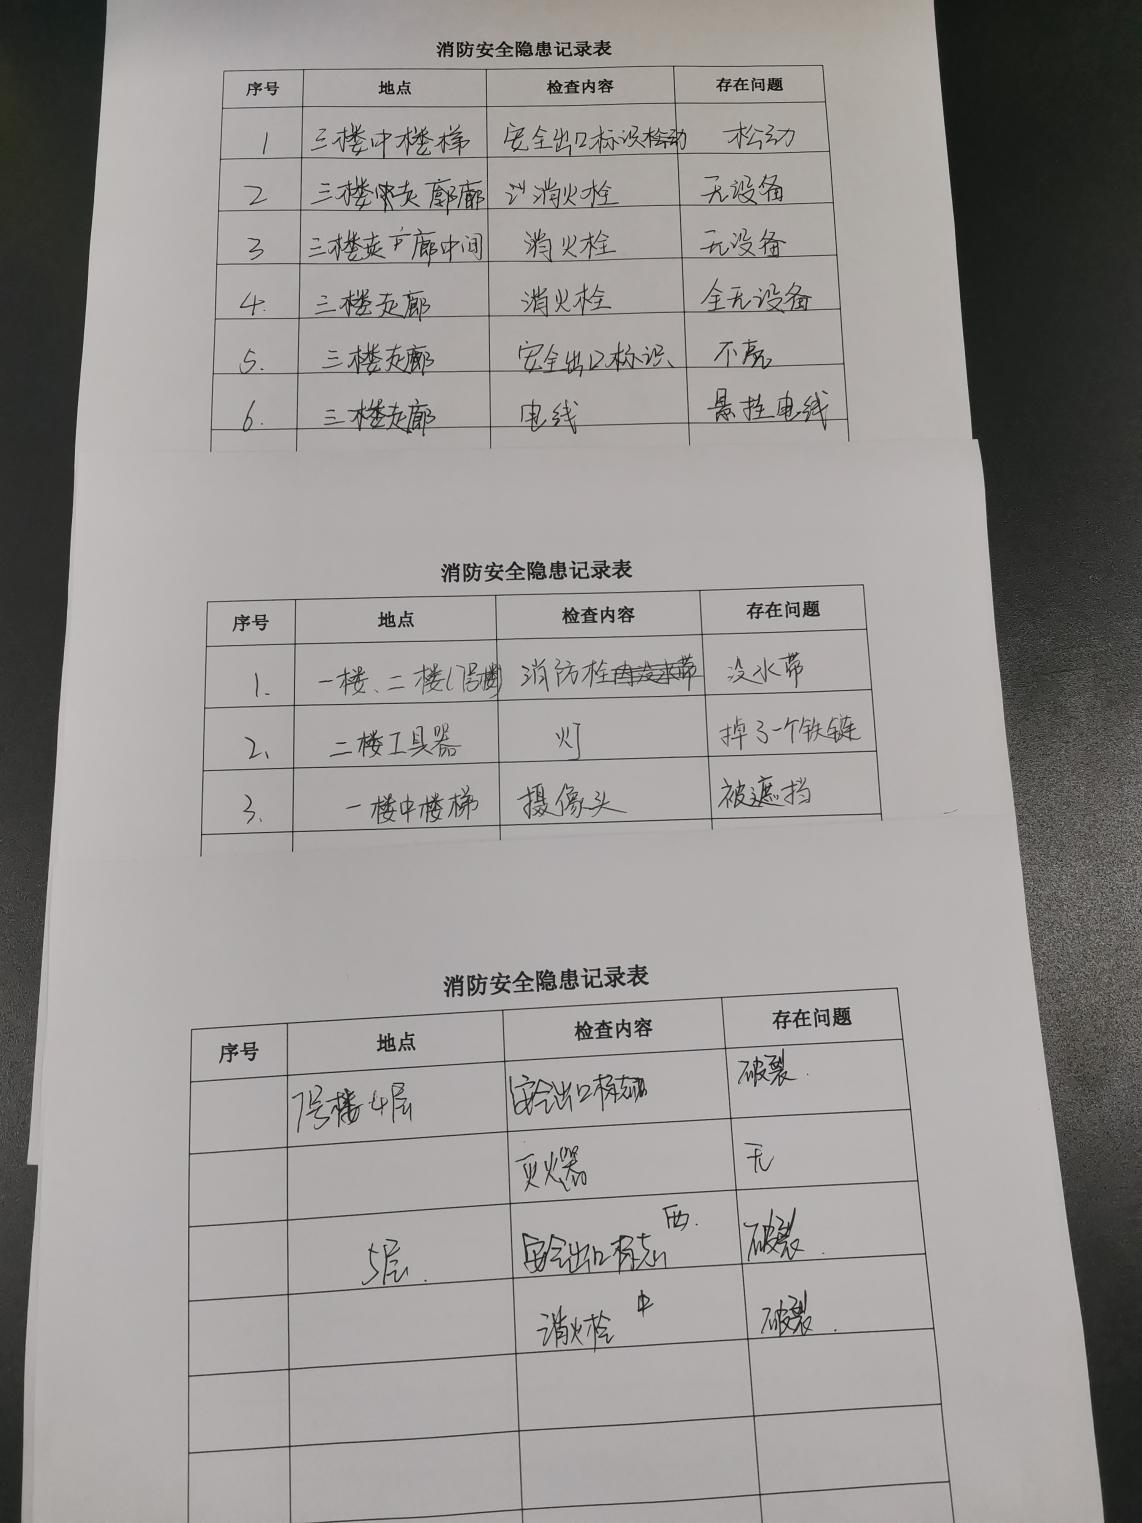 消防安全隐患记录表
序号 地点 检查内容 存在问题
1 三楼中楼梯 安全出口标识松动 松动
2 三楼走廊 消火栓 无设备
3 三楼走廊中间 消火栓 无设备
4. 三楼走廊 消火栓 全无设备
5. 三楼走廊 安全出口标识 不亮
6. 三楼走廊 电线 悬挂电线
消防安全隐患记录表
序号 地点 检查内容 存在问题
1. 一楼、二楼(7号楼) 消防栓内没水带 没水带
2、 二楼工具器 灯 掉了一个铁链
3. 一楼中楼梯 摄像头 被遮挡
消防安全隐患记录表
序号 地点 检查内容 存在问题
7号楼4层 安全出口标志 破裂.
灭火器 无
5层. 安全出口标志 西. 破裂.
消火栓 中 破裂.